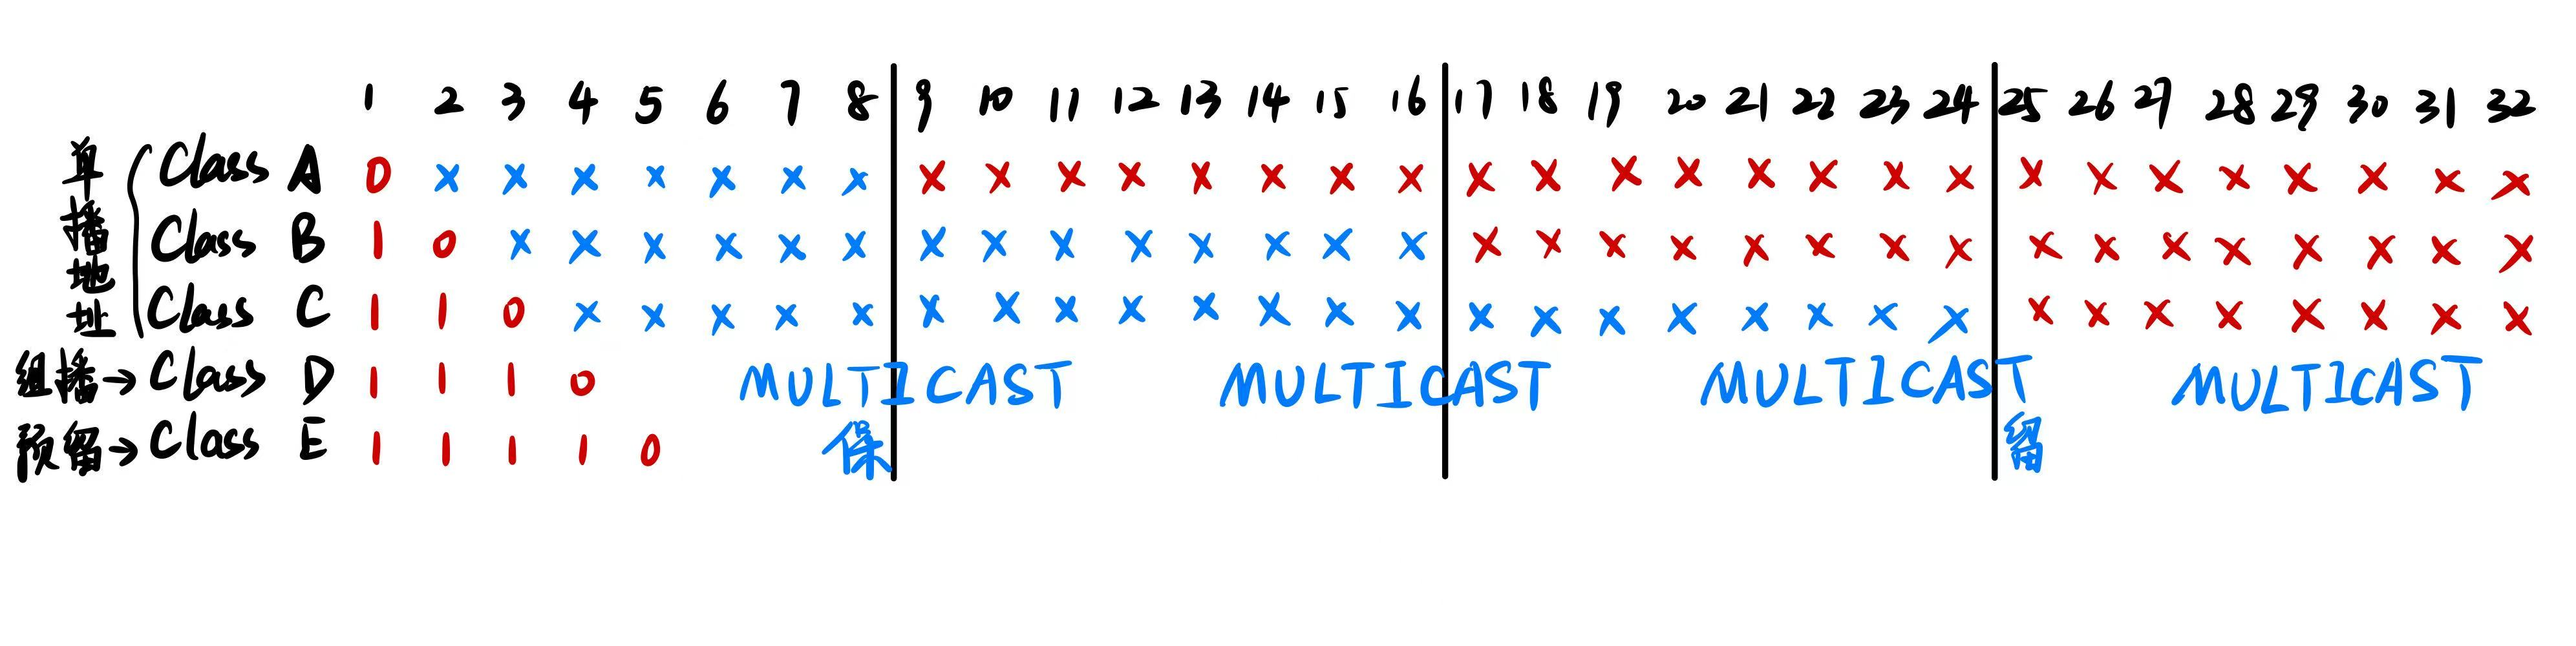 1 2 3 4 5 6 7 8 9 10 11 12 13 14 15 16 17 18 19 20 21 22 23 24 25 26 27 28 29 30 31 32
单播地址
Class A 0 x x x x x x x x x x x x x x x x x x x x x x x x x x x x x x x
Class B 1 0 x x x x x x x x x x x x x x x x x x x x x x x x x x x x x x
Class C 1 1 0 x x x x x x x x x x x x x x x x x x x x x x x x x x x x x
组播→Class D 1 1 1 0 MULTICAST MULTICAST MULTICAST MULTICAST
预留→Class E 1 1 1 1 0 保 留